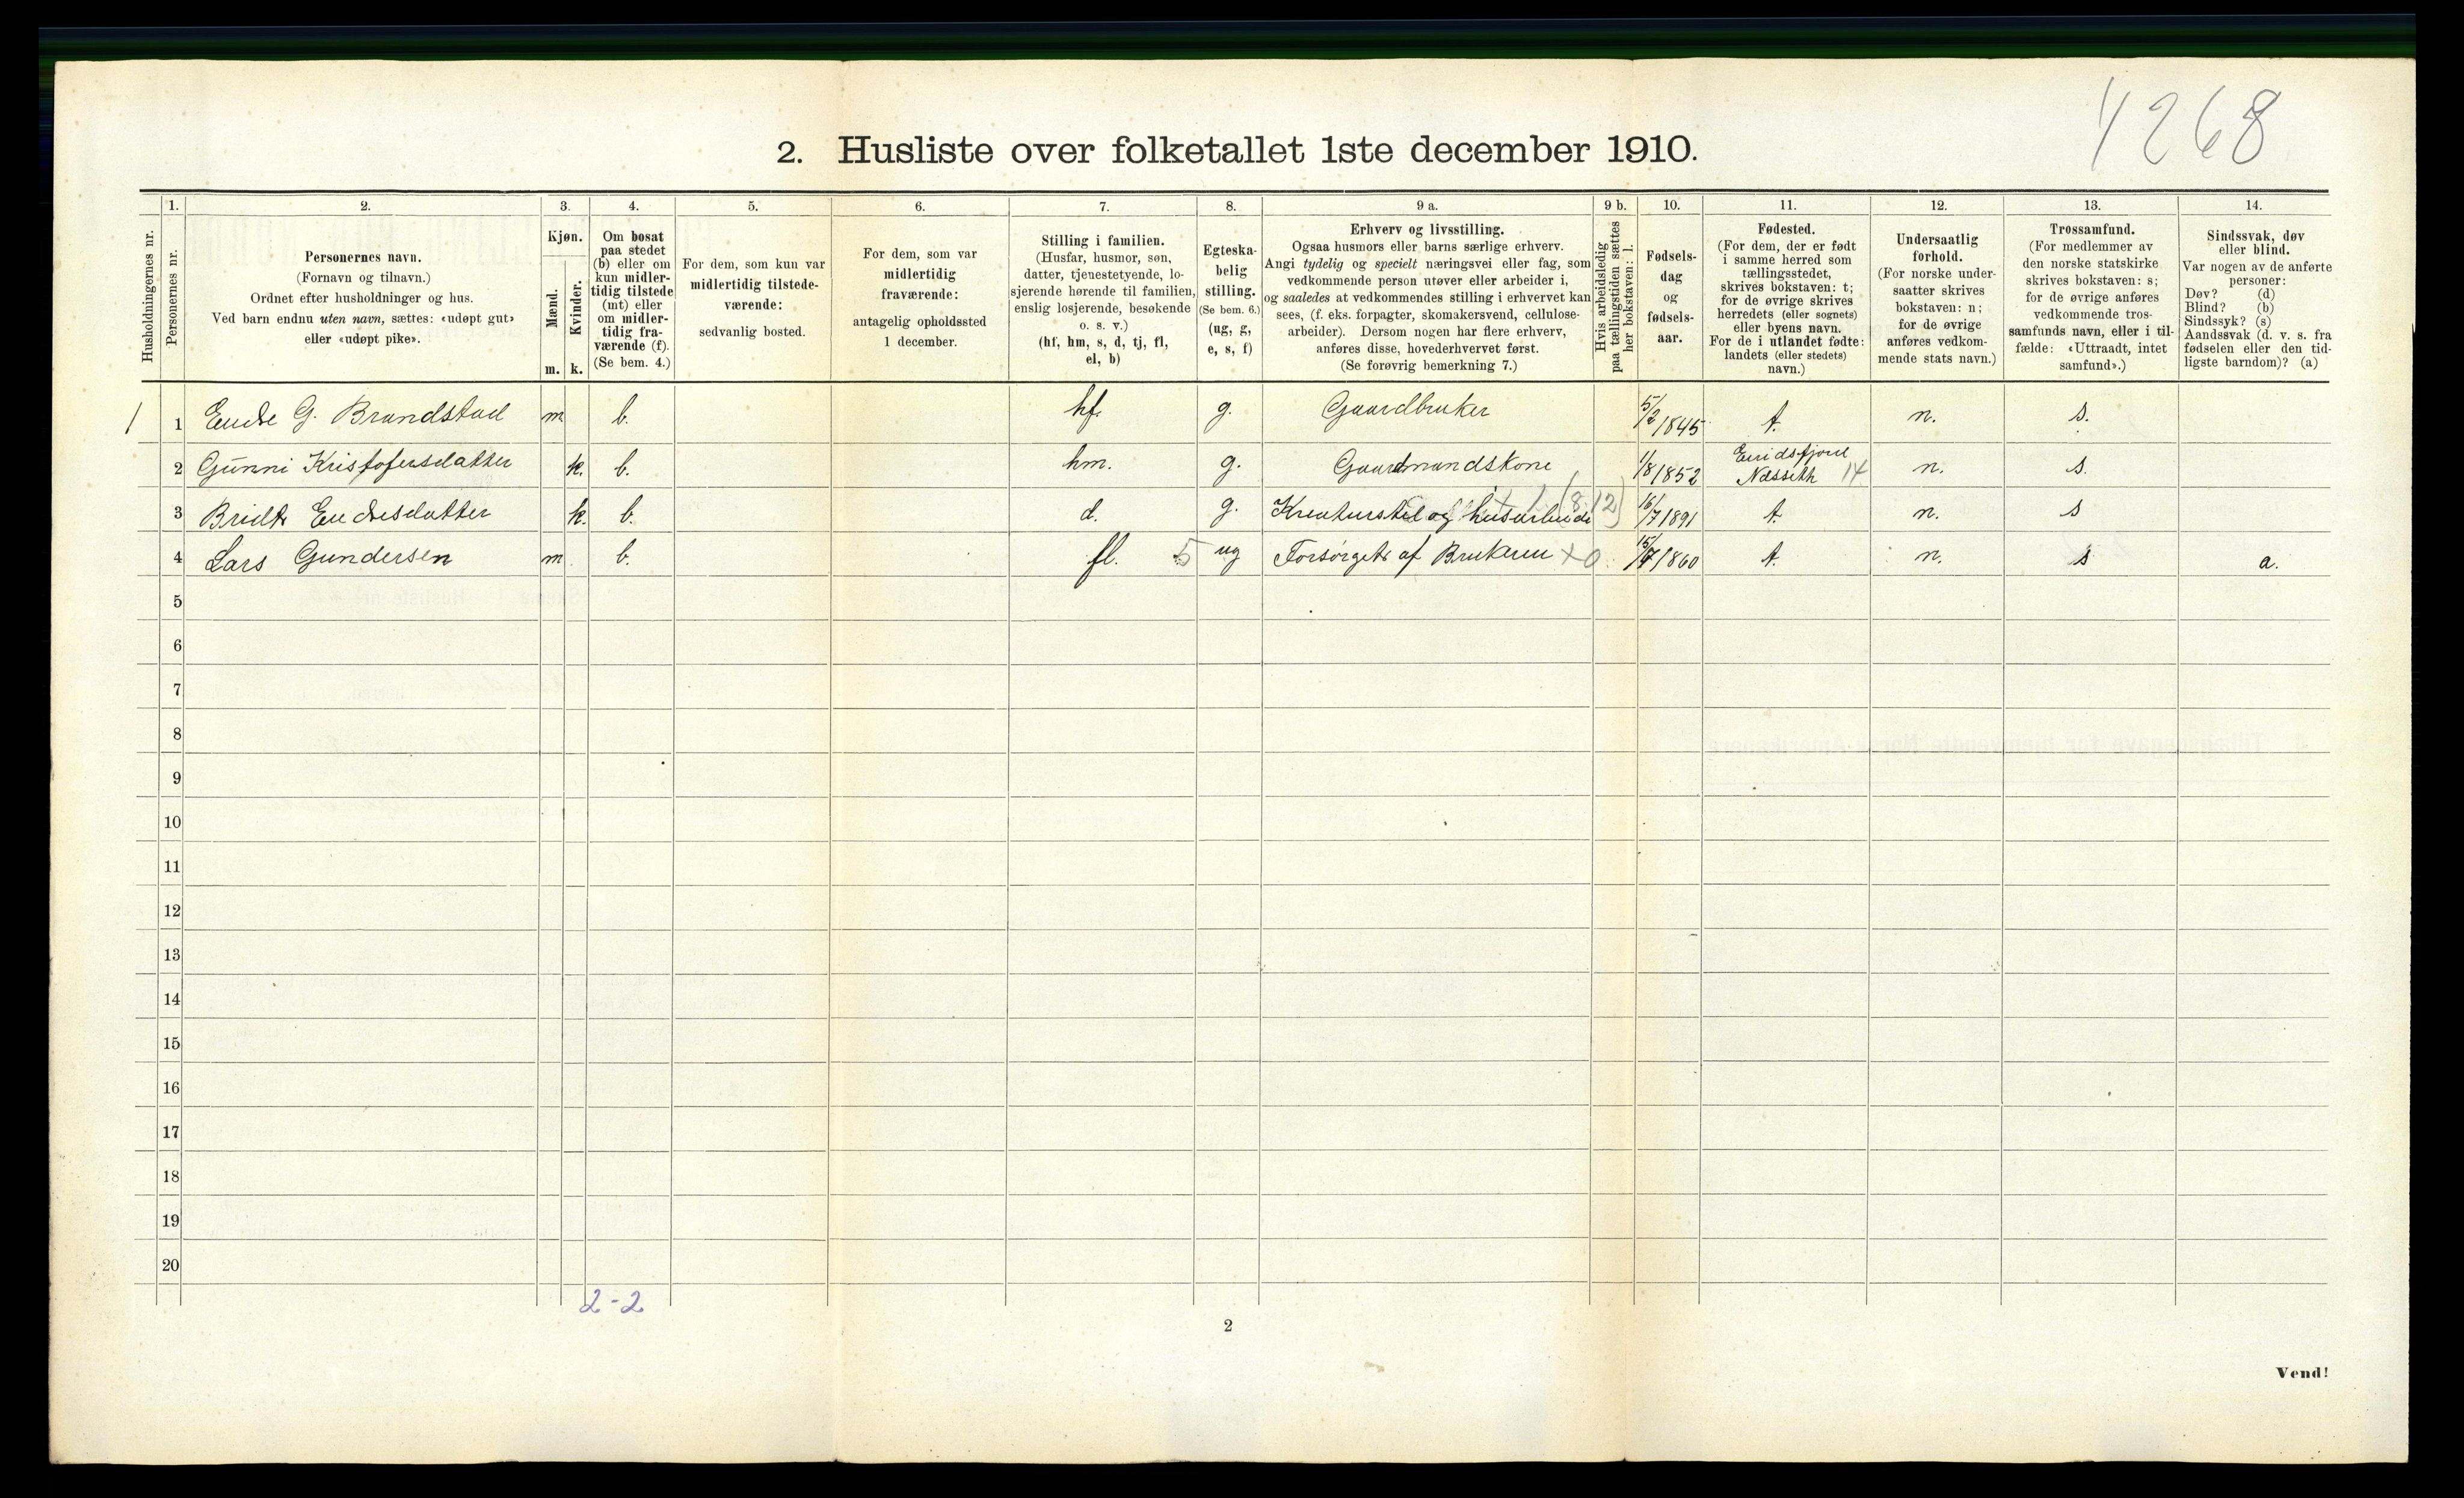 4268
2. Husliste over folketallet 1ste december 1910.
Husholdningernes nr.
1.
Personernes nr.
2.
Personernes navn.
(Fornavn og tilnavn.)
Ordnet efter husholdninger og hus.
Ved barn endnu uten navn, sættes: «udøpt gut»
eller «udøpt pike».
3.
Kjøn.
Mænd.
Kvinder.
m. k.
4.
Om bosat
paa stedet
(b) eller om
kun midler-
tidig tilstede
(mt) eller
om midler-
tidig fra-
værende (f).
(Se bem. 4.)
5.
For dem, som kun var
midlertidig tilstede-
værende:
sedvanlig bosted.
6.
For dem, som var
midlertidig
fraværende:
antagelig opholdssted
1 december.
7.
Stilling i familien.
(Husfar, husmor, søn,
datter, tjenestetyende, lo-
sjerende hørende til familien,
enslig losjerende, besøkende
o. s. v.)
(hf, hm, s, d, tj, fl,
el, b)
8.
Egteska-
belig
stilling.
(Se bem. 6.)
(ug, g,
e, s, f)
9 a.
Erhverv og livsstilling.
Ogsaa husmors eller barns særlige erhverv.
Angi tydelig og specielt næringsvei eller fag, som
vedkommende person utøver eller arbeider i,
og saaledes at vedkommendes stilling i erhvervet kan
sees, (f. eks. forpagter, skomakersvend, cellulose-
arbeider). Dersom nogen har flere erhverv,
anføres disse, hovederhvervet først.
(Se forøvrig bemerkning 7.)
9 b.
Hvis arbeidsledig
paa tællingstiden sættes
her bokstaven: l.
10.
Fødsels-
dag
og
fødsels-
aar.
11.
Fødested.
(For dem, der er født
i samme herred som
tællingsstedet,
skrives bokstaven: t;
for de øvrige skrives
herredets (eller sognets)
eller byens navn.
For de i utlandet fødte:
landets (eller stedets)
navn.)
12.
Undersaatlig
forhold.
(For norske under-
saatter skrives
bokstaven: n;
for de øvrige
anføres vedkom-
mende stats navn.)
13.
Trossamfund.
(For medlemmer av
den norske statskirke
skrives bokstaven: s;
for de øvrige anføres
vedkommende tros-
samfunds navn, eller i til-
fælde: «Uttraadt, intet
samfund».)
14.
Sindssvak, døv
eller blind.
Var nogen av de anførte
personer:
Døv? (d)
Blind? (b)
Sindssyk? (s)
Aandssvak (d. v. s. fra
fødselen eller den tid-
ligste barndom)? (a)
1 1 Endre G. Brandstad m b. hf. g. Gaardbruker 5/2 1845 t. n. s.
2 Gunni Kristofersdatter k. b. hm. g. Gaardmandskone 1/8 1852 Eridsfjord Næssitth 14 n. s.
3 Bridte Endresdatter k. b. d. g. Kreaturstel og husarbeide (8 12) 16/7 1891 t. n. s
4 Lars Gundersen m b. fl. 5 ug Forsørgets af Brukeren x 0 15/7 1860 t. n. s a.
5
6
7
8
9
10
11
12
13
14
15
16
17
18
19
20
2-2
2
Vend!